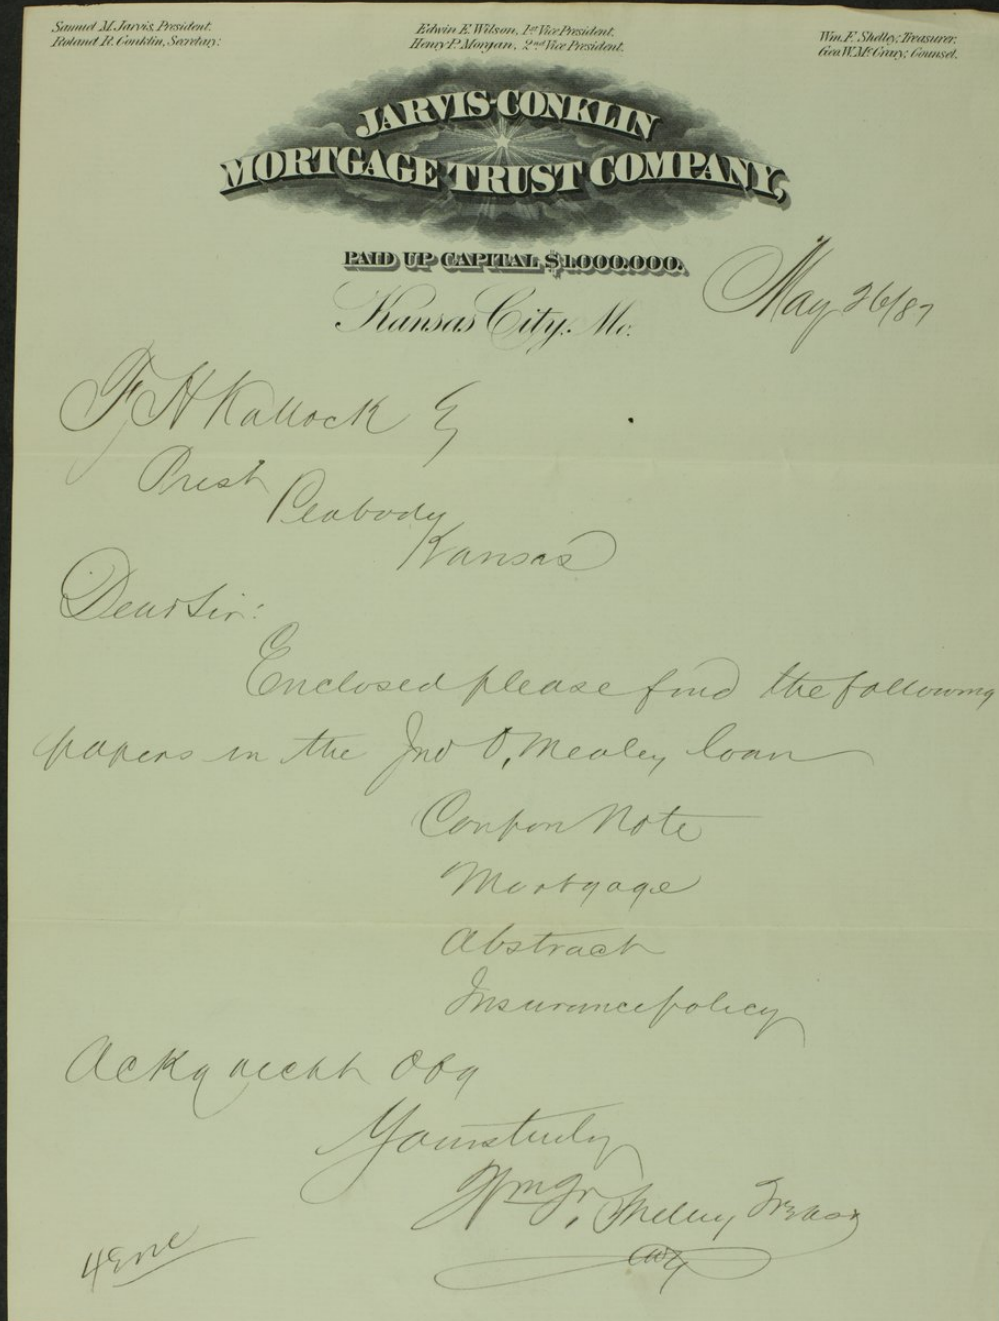 Samuel M. Jarvis, President.
Roland R. Conklin, Secretary.
Edwin E. Wilson, 1st Vice President.
Henry P. Morgan, 2nd Vice President.
Wm. F. Shelley, Treasurer.
Geo. W. McCrary, Counsel.
JARVIS-CONKLIN
MORTGAGE TRUST COMPANY,
PAID UP CAPITAL $1.000.000.
Kansas City, Mo.
May 26/87
F H Kollock
Prest
Peabody
Kansas
Dear Sir:
Enclosed please find the following
papers in the Jno O, Mealey loan
Coupon Note
Mortgage
Abstract
Insurance policy
Ackg recpt
Yours truly
Wm F, Shelley Treas
4 Enc